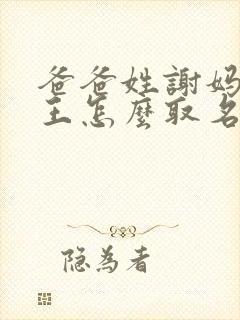 爸爸姓謝妈
王怎麼取名
隐为者